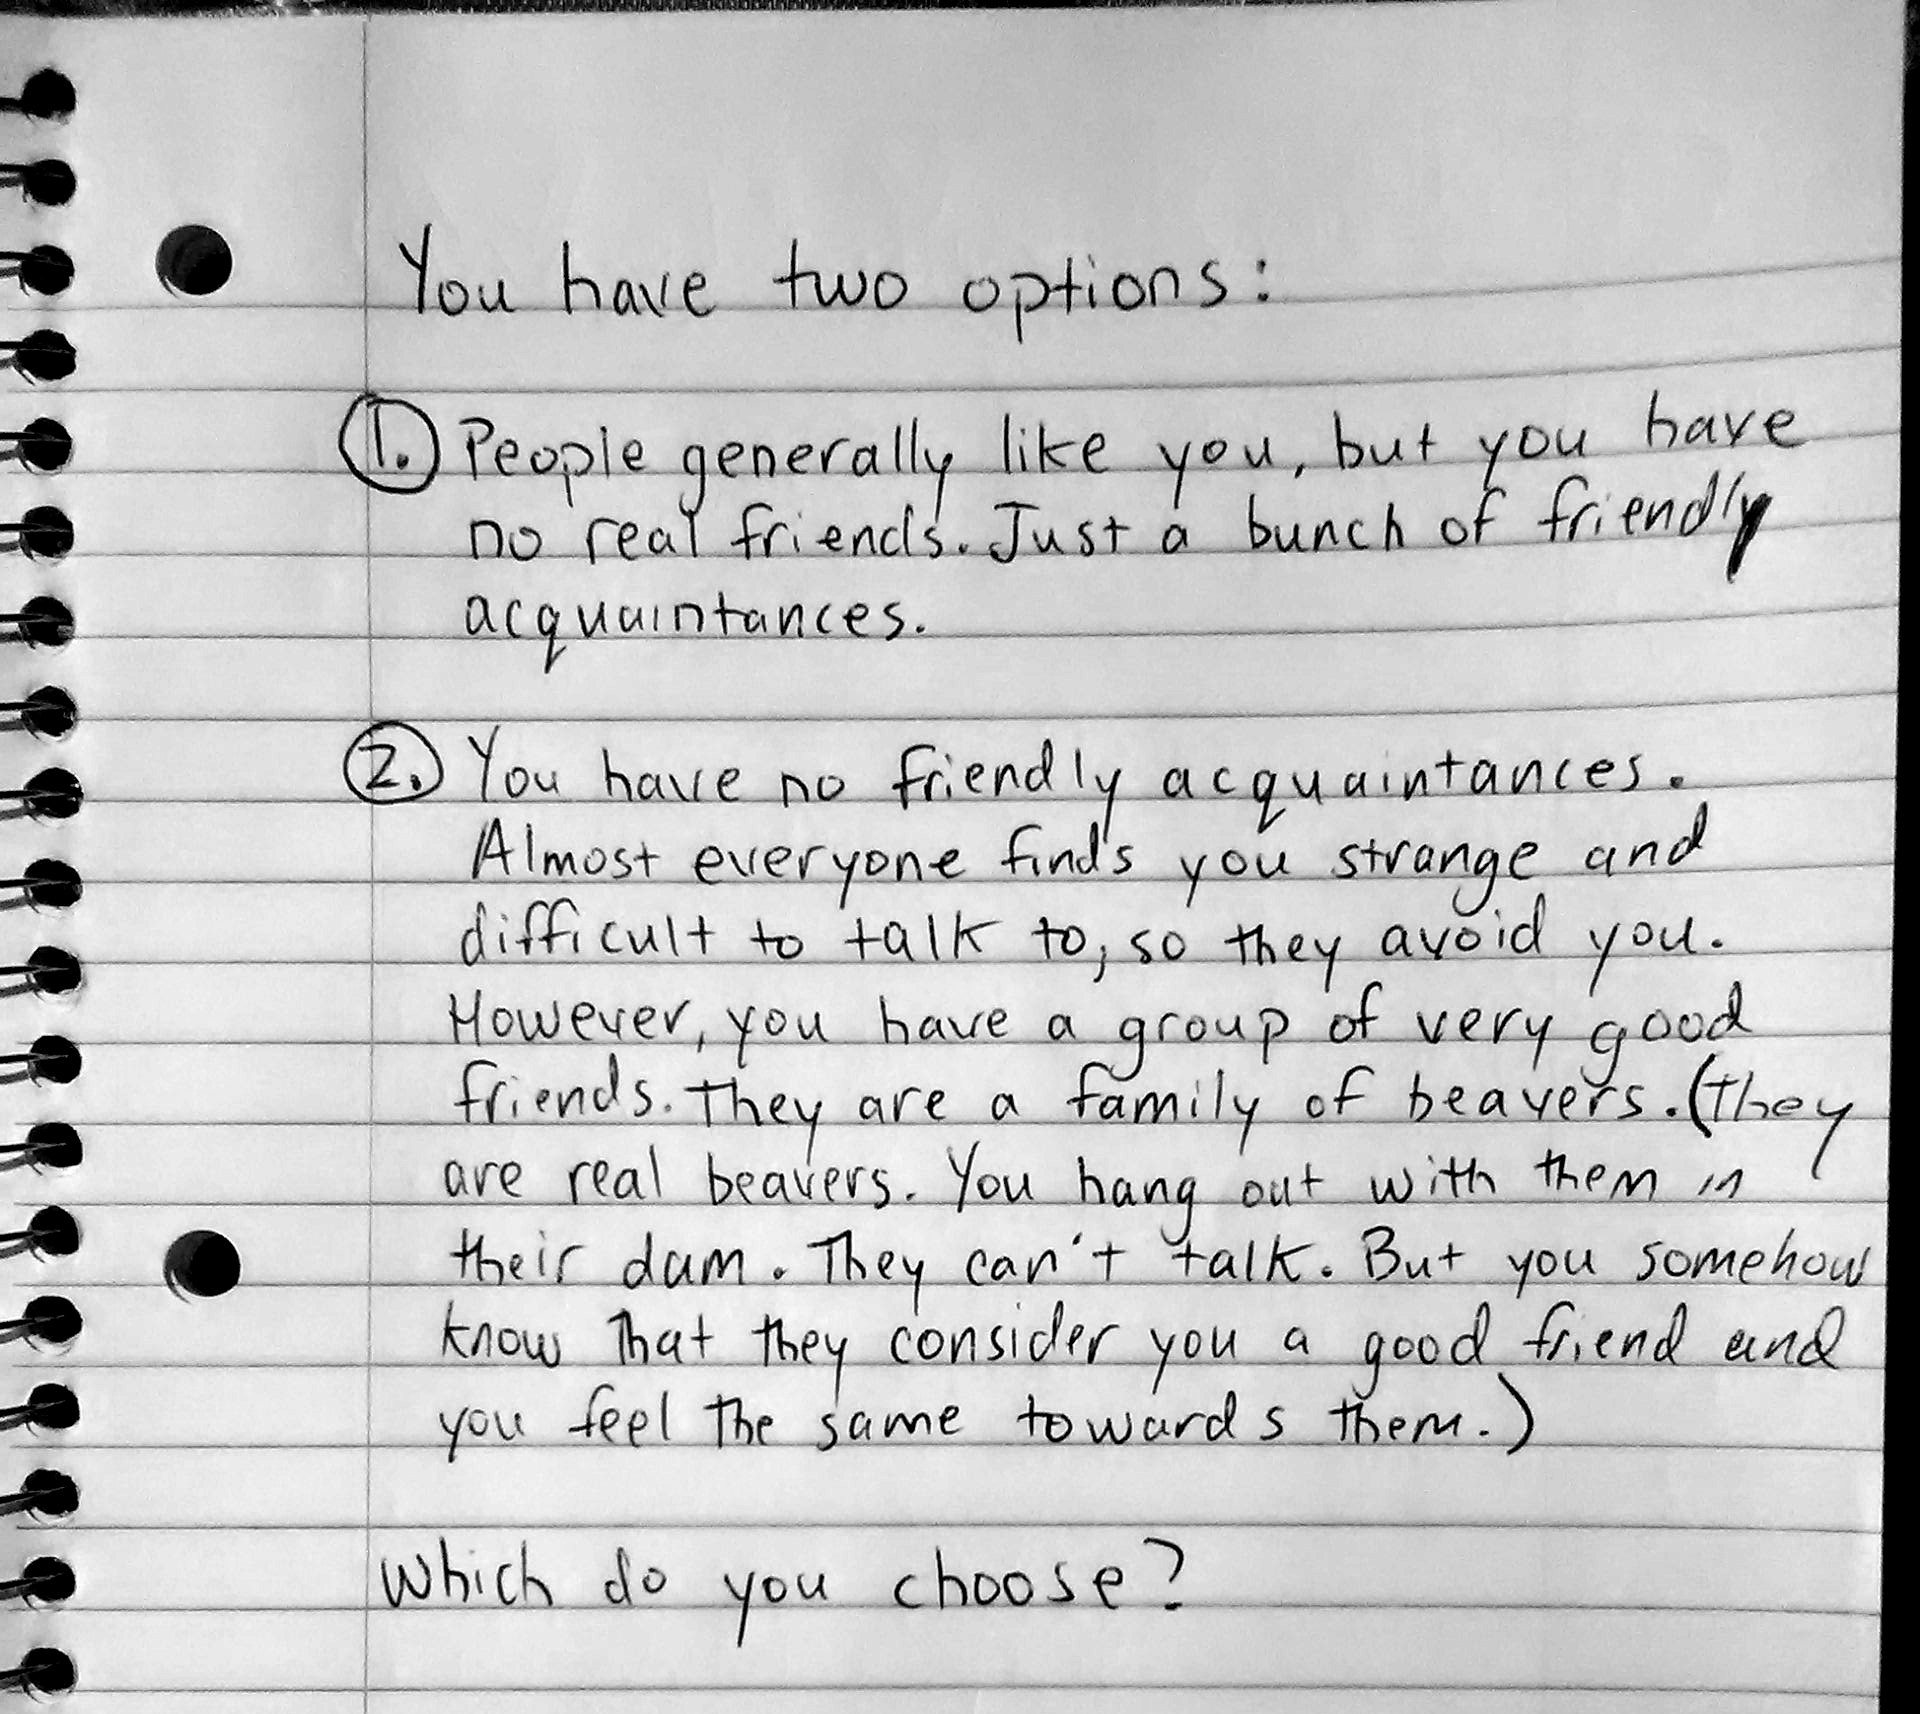 You have two options:
1. People generally like you, but you have
no real friends. Just a bunch of friendly
acquaintances.
2. You have no friendly acquaintances.
Almost everyone finds you strange and
difficult to talk to, so they avoid you.
However, you have a group of very good
friends. They are a family of beavers. (They
are real beavers. You hang out with them in
their dam. They can't talk. But you somehow
know that they consider you a good friend and
you feel the same towards them.)
Which do you choose?